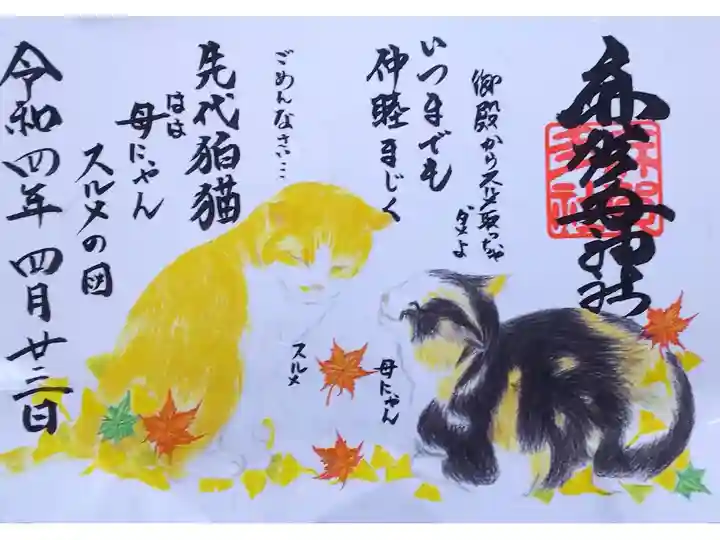 神社
御殿から
取っちゃ
ダメよ
いつまでも
仲睦まじく
ごめんなさい…
先代狛猫
はは
母にゃん
スルメの図
令和四年 四月廿三日
スルメ
母にゃん